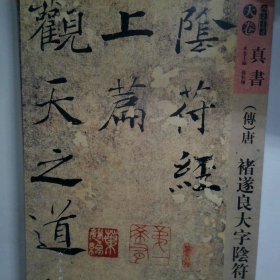 陰符經
上篇
觀天之道
大卷
真書
(傳)唐 褚遂良大字陰符